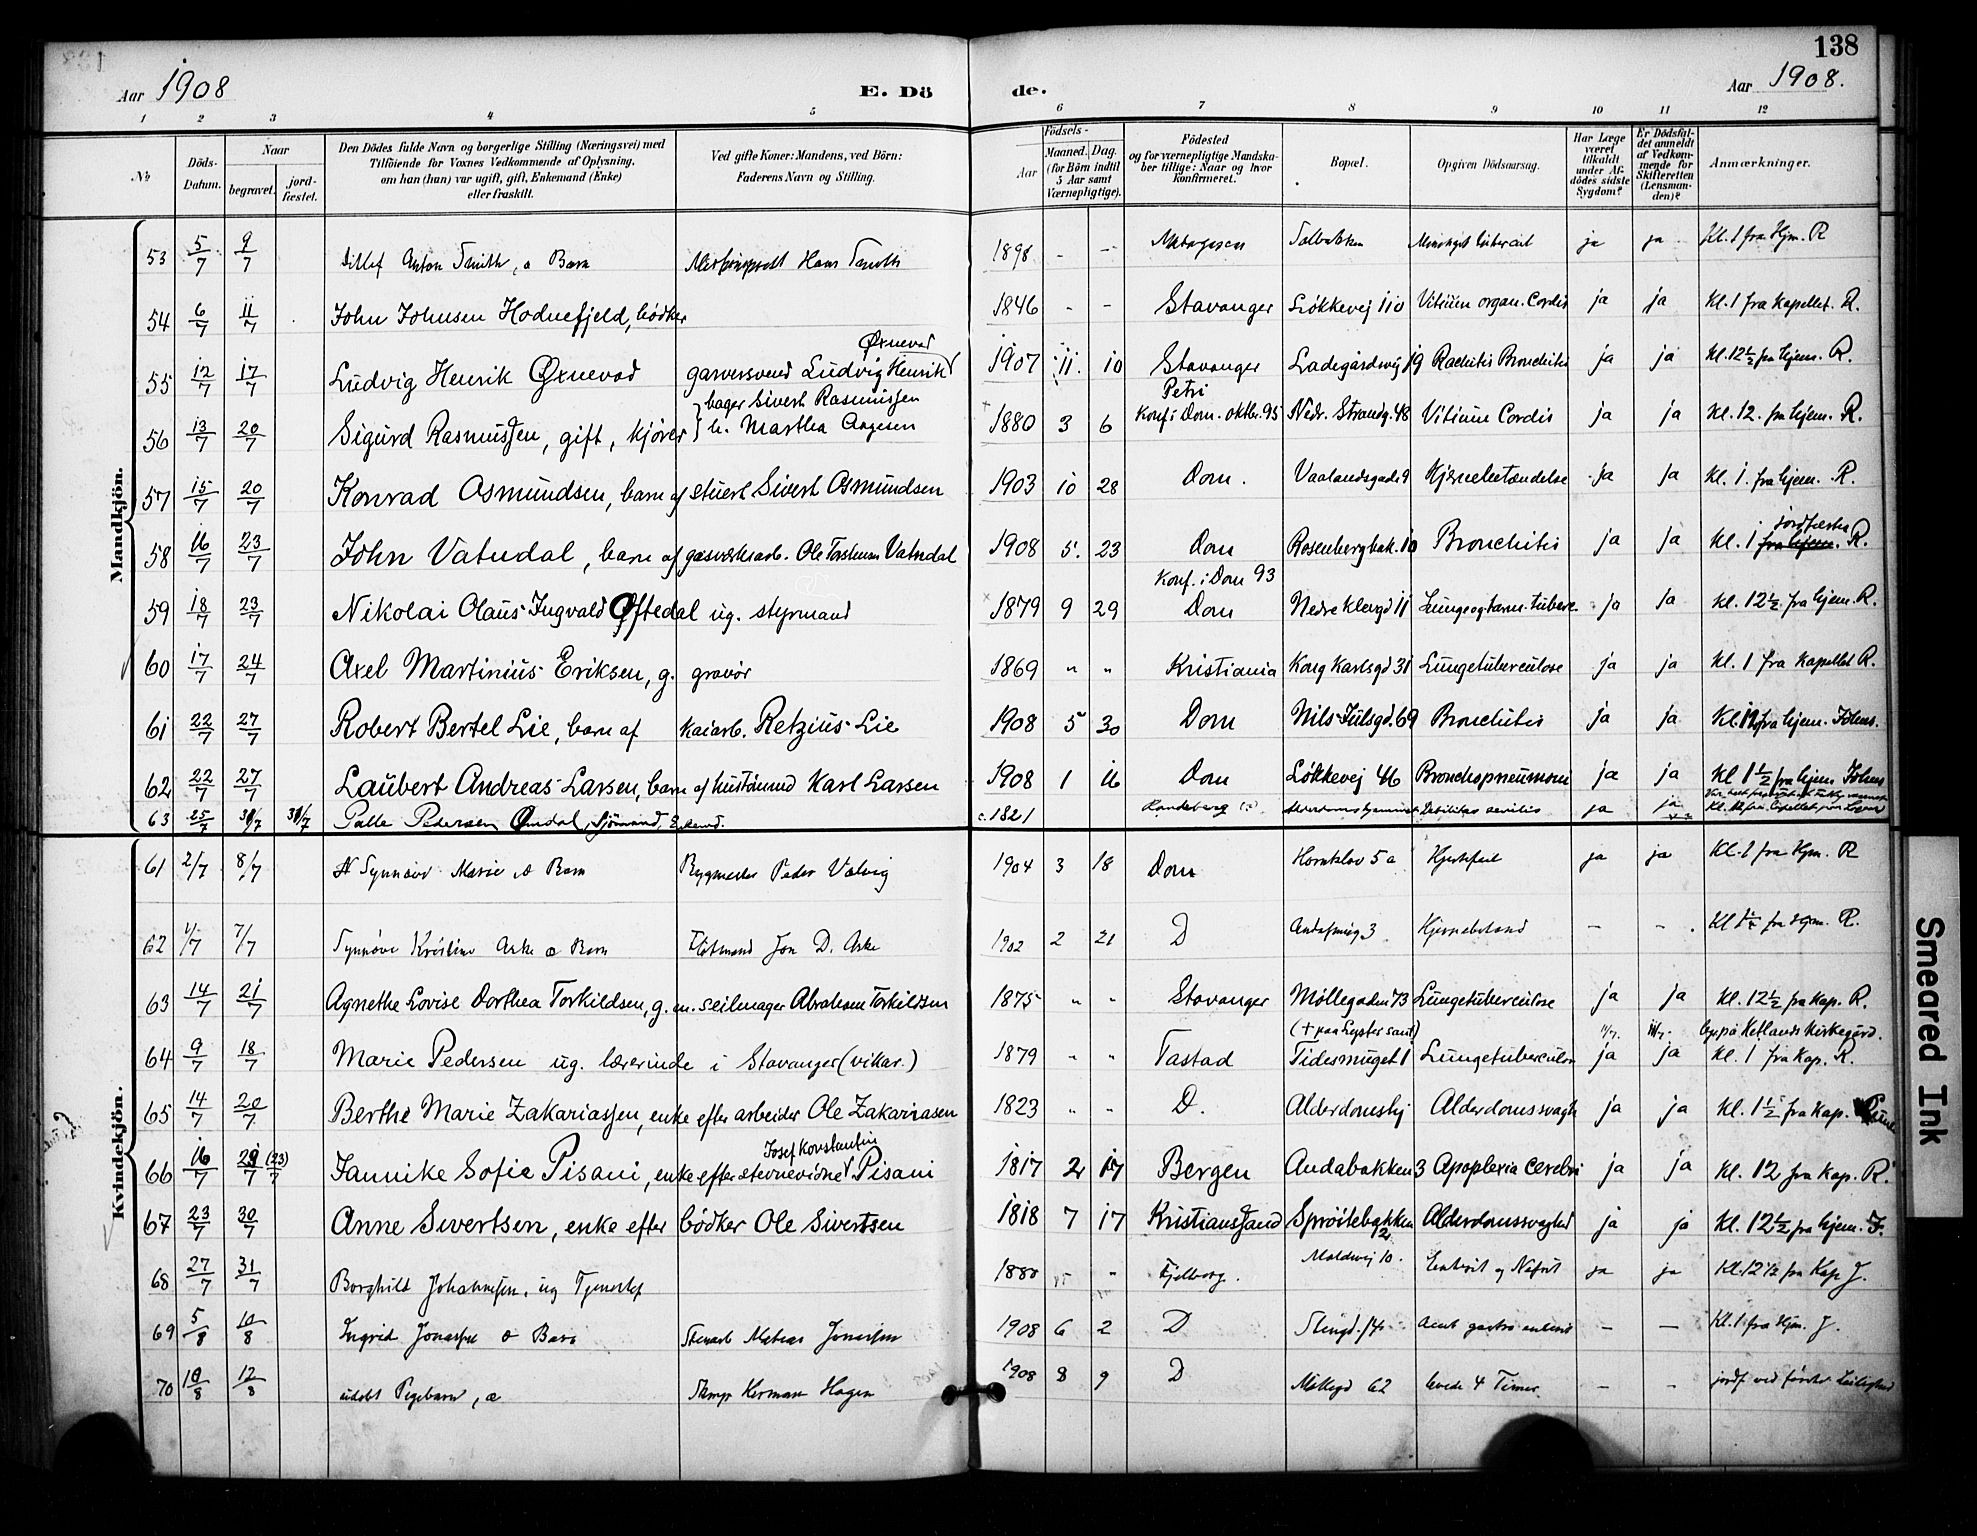 138
Aar 1908
E. Döde.
Aar 1908.
1 2 3 4 5 6 7 8 9 10 11 12
No
Döds-Datum.
Naar
begravet.
jord-fæstet.
Den Dödes fulde Navn og borgerlige Stilling (Næringsvei) med
Tilföiende for Voxnes Vedkommende af Oplysning,
om han (hun) var ugift, gift, Enkemand (Enke)
eller fraskilt.
Ved gifte Koner: Mandens, ved Börn:
Faderens Navn og Stilling.
Födsels-
Aar
Maaned. Dag.
(for Börn indtil
5 Aar samt
Værnepligtige).
Födested
og for værnepligtige Mandska-
ber tillige: Naar og hvor
konfirmeret.
Bopæl.
Opgiven Dödsaarsag.
Har Læge
været
tilkaldt
under Af-
dödes sidste
Sygdom?
Er Dödsfal-
det anmeldt
af Vedkom-
mende for
Skifteretten
(Lensman-
den)?
Anmærkninger.
Mandkjön.
53 5/7 9/7 Ditlef Anton , a Barn Hans 1898 - - ja ja Kl. 1 fra Hjm. R
54 6/7 11/7 John Johnsen Hodnefjeld, bødker 1846 - - Stavanger Løkkevej 110 Vitium organ. Cordis ja ja Kl. 1 fra Kapellet. R.
Øxnevad
55 12/7 17/7 Ludvig Henrik Øxnevad garversvend Ludvig Henrik 1907 11. 10 Stavanger Ladegårdsvej 19 Rachitis Bronchitis ja ja Kl. 12½ fra hjem. R.
bager Sivert Rasmussen Petri
56 13/7 20/7 Sigurd Rasmussen, gift, kjører h. Martha Aagesen 1880 3 6 Konf i Dom. oktbr. 95 Nedr. Strandg. 48 Vitium Cordis ja ja Kl. 12. fra hjem. R.
57 15/7 20/7 Konrad Asmundsen, barn af stuert Sivert Asmundsen 1903 10 28 Dom. Vaalandsgade 9 Hjernebetændelse ja ja Kl. 1. fra hjem. R.
jordfæstes
58 16/7 23/7 John Vatndal, barn af gasværksarb. Ole Vatndal 1908 5. 23 Dom Rosenbergbak. 10 Bronchitis ja ja Kl. 1 fra hjem. R.
Konf. i Dom 93
59 18/7 23/7 Nikolai Olaus Ingvald Oftedal ug. styrmand 1879 9 29 Dom Nedre Klevgd 11 Lunge og tarm. tuberc. ja ja Kl. 12½ fra hjem. R.
60 17/7 24/7 Axel Martinius Eriksen, g. gravør 1869 " " Kristiania Kong Karlsgd 31 Lungetuberculose ja ja Kl. 1 fra Kapellet R.
61 22/7 27/7 Robert Bertel Lie, barn af kaiarb. Retzius Lie 1908 5 30 Dom Nils Juelsgd. 69 Bronchitis ja ja Kl. fra hjem. Johns.
62 22/7 27/7 Laubert Andreas Larsen, barn af hustømmd Karl Larsen 1908 1 16 Dom Løkkevej 46 Bronchopneumoni ja ja Kl 1½ fra hjem Johns
63 25/7 30/7 30/7 Palle Pedersen Omdal, Sjömand, Enkemd. c. 1821 Randeberg (?) Debilitas senilis ja ja
Kvindekjön.
61 2/7 8/7 Synnøve Marie a Barn Bygmester Peder Valvig 1904 3 18 Dom Hornklov 5a Hjertefeil ja ja Kl. 1 fra Hjm. R
62 4/7 7/7 Synnøve Kristine Aske a Barn Jon D. Aske 1902 2 21 D 3 Hjernebetænd - - Kl 1½ fra Hjm. R.
63 14/7 21/7 Agnethe Lovise Dorthea Torkildsen, g. m. seilmager Abraham Torkildsen 1875 " " Stavanger Møllegaden 73 Lungetuberculose ja ja Kl. 12½ fra Kap. R.
(+ paa Lyster sanat.) 11/7. begr på Hetlands Kirkegård.
64 9/7 18/7 Marie Pedersen ug. lærerinde i Stavanger (vikar.) 1879 " " Tastad Tidesmuget 1 Lungetuberculose ja ja Kl. 1 fra Kap. R.
65 14/7 20/7 Berthe Marie Zakariassen, enke efter arbeider Ole Zakariasen 1823 " " D. Alderdomshj Alderdomssvagh ja ja Kl. 1½ fra Kap.
Josef Konstantin
66 16/7 23/7 (23/7) Jannike Sofie Pisani, enke efter stevnevidne Pisani 1817 2 17 Bergen Andabakken 3 Apoplexia cerebri ja ja Kl. 12 fra Kap. R.
67 23/7 30/7 Anne Sivertsen, enke efter bødker Ole Sivertsen 1818 7 17 Kristianssand Sprøitebakken 2 Alderdomssvaghed ja ja Kl. 12½ fra hjem. J.
68 27/7 31/7 Borghild Johannesen, ug Tjeneste 1880 " Fjelberg. 10. og Nefrit ja ja Kl. 12½ fra Kap J.
69 5/8 10/8 Ingrid Jonassen a Barn Stuert Matias Jonassen 1908 6 2 D Stengd. 14 Acut gastro enterit - - Kl. 1 fra Hjm. J.
70 10/8 12/8 udøbt Pigebarn, a Herman Hagen 1908 8 9 D Møllegd 62 levede 4 Timer - - jordf ved første Leilighed
Smeared Ink